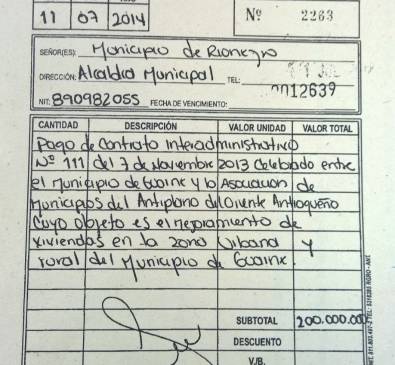 11 07 2014
Nº 2263
SEÑOR(ES): Municipio de Rionegro
DIRECCIÓN: Alcaldia Municipal TEL:
0012639
NIT: 890982055 FECHA DE VENCIMIENTO:
CANTIDAD DESCRIPCIÓN VALOR UNIDAD VALOR TOTAL
Pago de Contrato Interadministrativo
Nº 111 del 7 de Noviembre 2013 Celebrado entre
el Municipio de Guarne y la Asociacion de
Municipios del Altiplano del Oriente Antioqueño
Cuyo objeto es el mejoramiento de
viviendas en la zona Urbana y
rural del Municipio de Guarne.
SUBTOTAL 200.000.000
DESCUENTO
V.B.